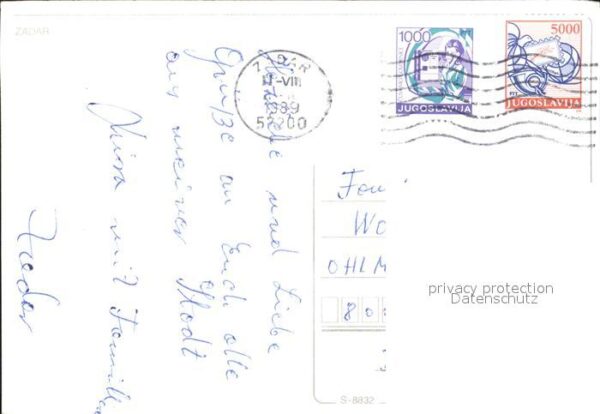 ZADAR
1000
JUGOSLAVIJA
5000
JUGOSLAVIJA
ZADAR
-VIII
89
57200
und Liebe
Grüße an Euch alle
aus meiner Stadt
Mira mit Familie
Zadar
Fam
Wo
OHLM
80
privacy protection
Datenschutz
S-8832